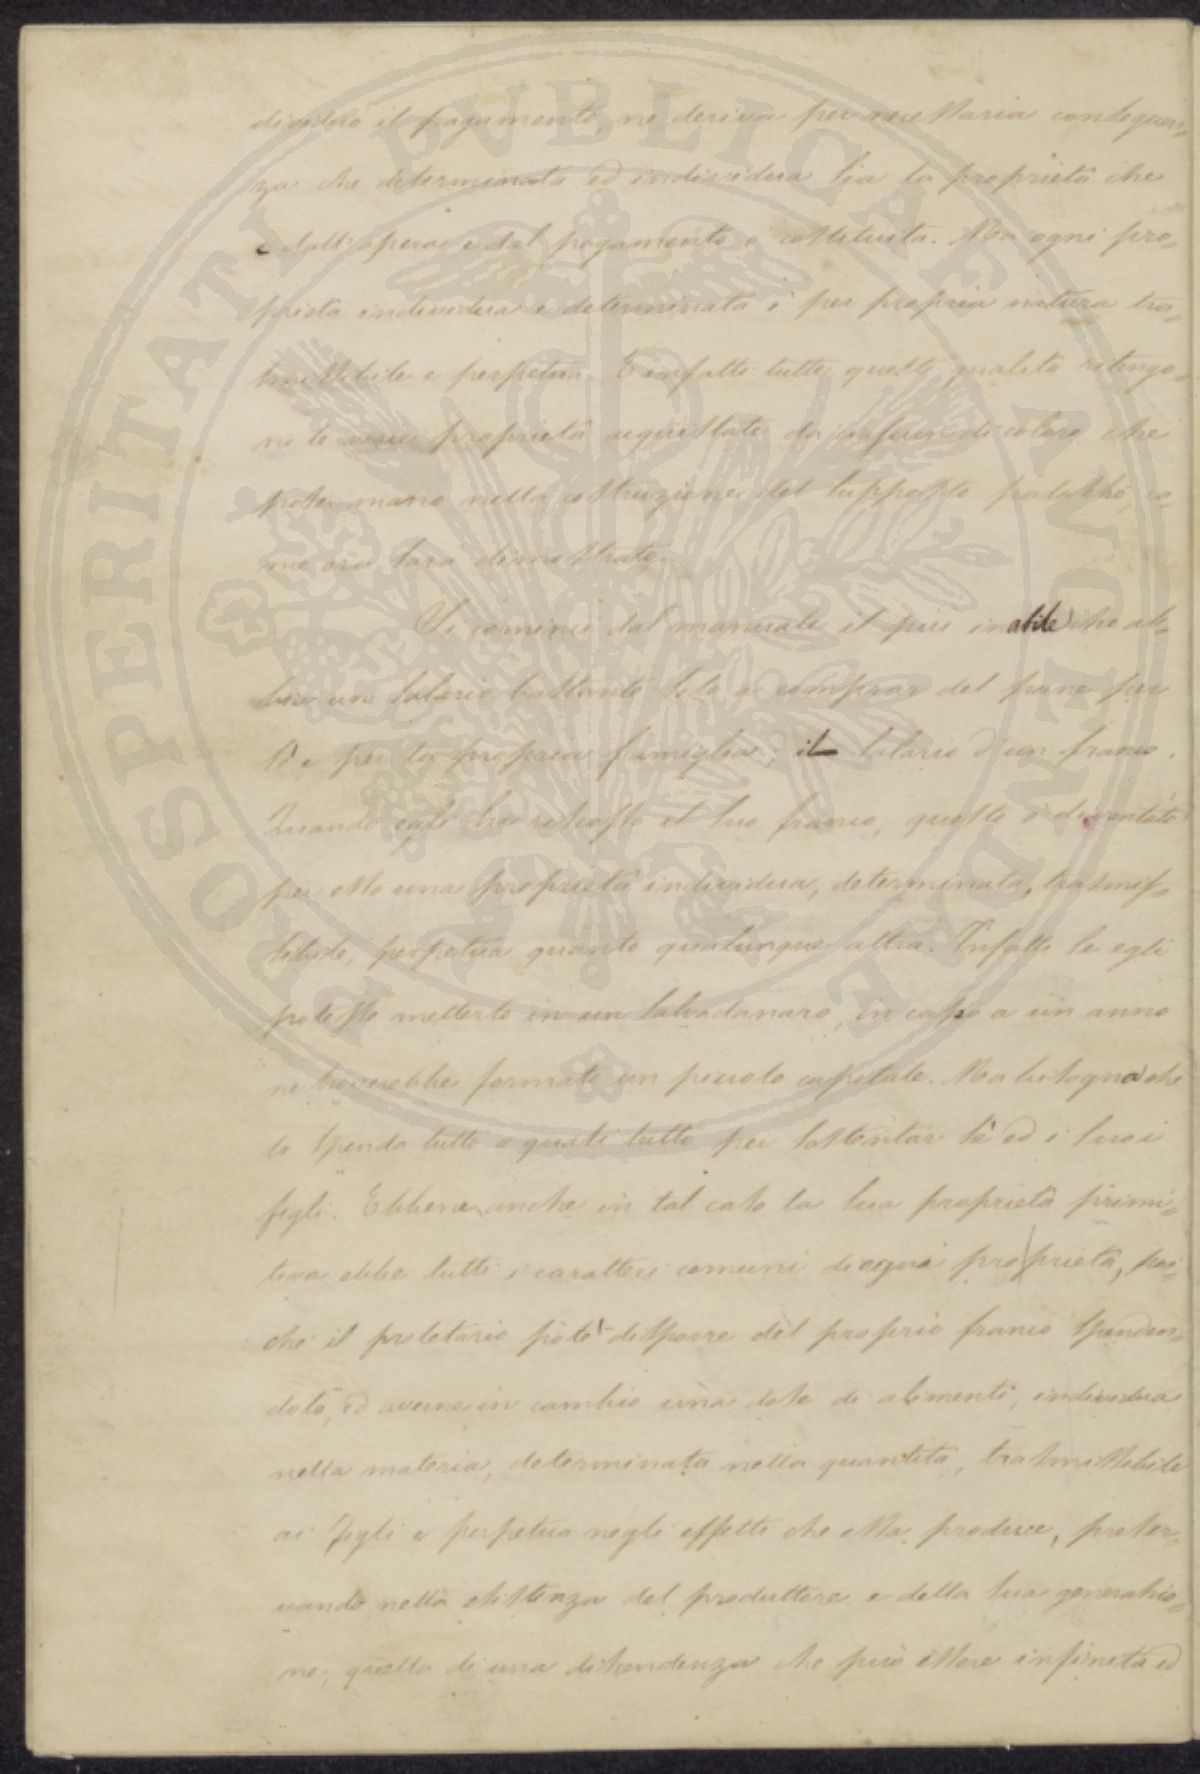 diviſero il pagamento, ne deriva per neceſſaria conſeguen-
za che determinata ed individua ſia la proprietà che
e dall'opera e dal pagamento è coſtituita. Ma ogni pro-
prietà individua e determinata è per propria natura tra-
ſmiſſibile e perpetua. E infatti tutte queſte qualità ritengo-
no le varie proprietà acquiſtate da ciaſcun di coloro che
poſer mano nella coſtruzione del ſuppoſto palazzo, co-
me ora ſarà dimoſtrato.
Si cominci dal manuale il più inabile che ab-
bia un ſalario baſtante ſolo a comprar del pane per
ſè e per la propria famiglia; il ſalario d'un franco.
Quando egli ha riſcoſſo il ſuo franco, queſto è diventato
per eſſo una proprietà individua, determinata, traſmiſ-
ſibile, perpetua quanto qualunque altra. Infatti ſe egli
poteſſe metterlo in un ſalvadanaro, in capo a un anno
ne troverebbe formato un piccolo capitale. Ma biſogna che
lo ſpenda tutto o quaſi tutto per ſoſtentar ſè ed i ſuoi
figli. Ebbene anche in tal caſo la ſua proprietà primi-
tiva ebbe tutti i caratteri comuni di ogni proprietà, poi-
chè il proletario potè diſporre del proprio franco ſpenden-
dolo, ed averne in cambio una doſe di alimenti, individua
nella materia, determinata nella quantità, traſmiſſibile
ai figli e perpetua negli effetti che eſſa produce, preſer-
vando nella eſiſtenza del produttore e della ſua generazio-
ne, quella di una diſcendenza che può eſſere infinita ed
PROSPERITATI PVBLICAE AVGENDAE